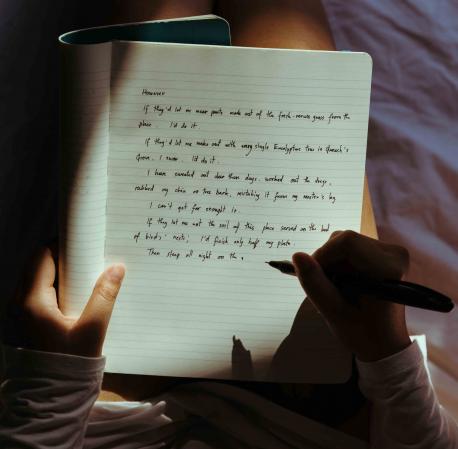 However
If they'd let me wear pants made out of the fresh-nerves grass from the
place. I'd do it.
If they'd let me make out with every single Eucalyptus tree in Ipanach's
Grove. I swear. I'd do it.
I have sweated out dear than days. worked out the dregs,
rubbed my chin on tree bark, mistaking it from my master's leg
I can't get far enought is.
If they let me eat the soil of this place served on the bed
of birds' nests; I'd finish only half my plate.
Then sleep all night on the